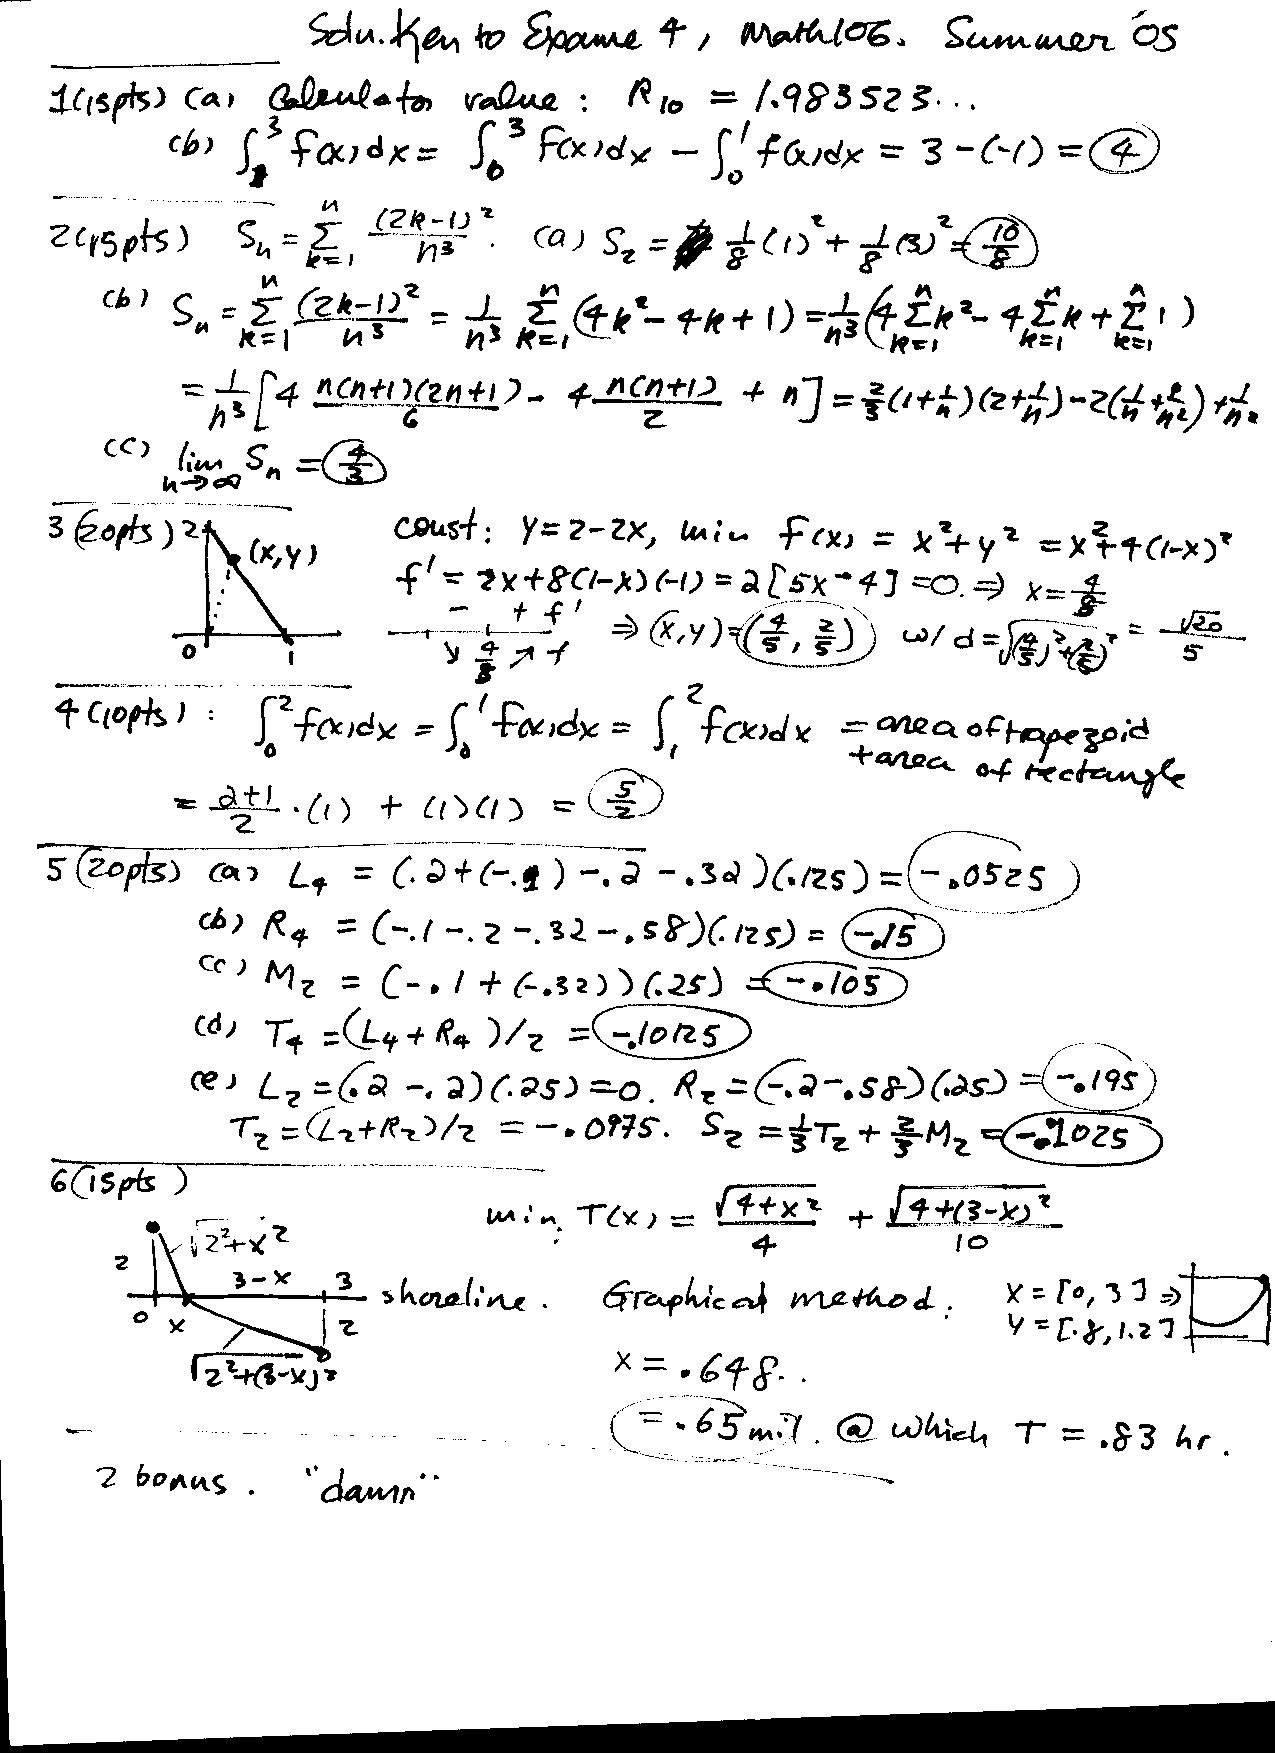 Solu. Key to Exame 4, Math106. Summer '05
1(15pts) (a) Calculator value: R₁₀ = 1.983523...
(b) ∫₁³ f(x)dx = ∫₀³ f(x)dx − ∫₀¹ f(x)dx = 3 − (−1) = 4
2(15pts) Sₙ = Σₖ₌₁ⁿ (2k−1)²/n³. (a) S₂ = 1/8 (1)² + 1/8 (3)² = 10/8
(b) Sₙ = Σₖ₌₁ⁿ (2k−1)²/n³ = 1/n³ Σₖ₌₁ⁿ (4k² − 4k + 1) = 1/n³ (4 Σₖ₌₁ⁿ k² − 4 Σₖ₌₁ⁿ k + Σₖ₌₁ⁿ 1)
= 1/n³ [4 n(n+1)(2n+1)/6 − 4 n(n+1)/2 + n] = 2/3 (1+1/n)(2+1/n) − 2(1/n + 1/n²) + 1/n²
(c) lim n→∞ Sₙ = 4/3
3(20pts) 2 (x,y) 0 1
const: y = 2−2x, min f(x) = x² + y² = x² + 4(1−x)²
f' = 2x + 8(1−x)(−1) = 2[5x − 4] = 0. ⇒ x = 4/5
− + f' ⇒ (x,y) = (4/5, 2/5) w/ d = √((4/5)² + (2/5)²) = √20/5
↘ 4/5 ↗ f
4(10pts): ∫₀² f(x)dx = ∫₀¹ f(x)dx = ∫₁² f(x)dx = area of trapezoid
+ area of rectangle
= (2+1)/2 · (1) + (1)(1) = 5/2
5(20pts) (a) L₄ = (.2 + (−.1) − .2 − .32)(.125) = −.0525
(b) R₄ = (−.1 − .2 − .32 − .58)(.125) = −.15
(c) M₂ = (−.1 + (−.32))(.25) = −.105
(d) T₄ = (L₄ + R₄)/2 = −.10125
(e) L₂ = (.2 − .2)(.25) = 0. R₂ = (−.2 − .58)(.25) = −.195
T₂ = (L₂ + R₂)/2 = −.0975. S₂ = 1/3 T₂ + 2/3 M₂ = −.1025
6(15pts)
min: T(x) = √(4+x²)/4 + √(4+(3−x)²)/10
2 √(2²+x²) 3−x 3 0 x 2 √(2²+(3−x)²)
shoreline. Graphical method: x = [0, 3] ⇒
y = [.8, 1.2]
x = .648..
= .65 mil. @ which T = .83 hr.
2 bonus. "damn"